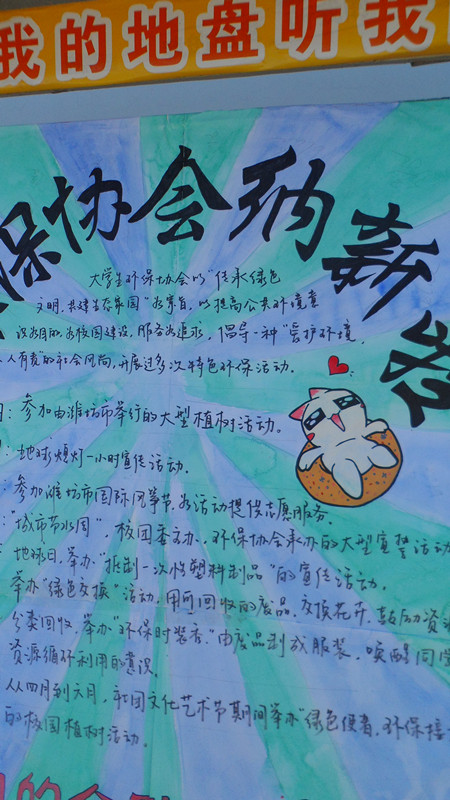 我的地盘听我
保协会纳新啦
大学生环保协会以"传承绿色
文明,共建生态家园"为宗旨,以提高公共环境意
识为目的,为校园建设,服务为追求,倡导一种"爱护环境,
人人有责"的社会风尚,开展过多次特色环保活动。
:参加由潍坊市举行的大型植树活动。
:地球熄灯一小时宣传活动。
:参加潍坊市国际风筝节,为活动提供志愿服务。
:"城市节水周",校团委主办,环保协会承办的大型宣誓活动
地球日,举办"抵制一次性塑料制品"的宣传活动。
举办"绿色交换"活动,用可回收的废品,交换花卉,鼓励资源
分类回收,举办"环保时装秀",由废品制成服装,唤醒同学
资源循环利用的意识。
从四月到六月,社团文化艺术节期间举办"绿色使者,环保接
的校园植树活动。